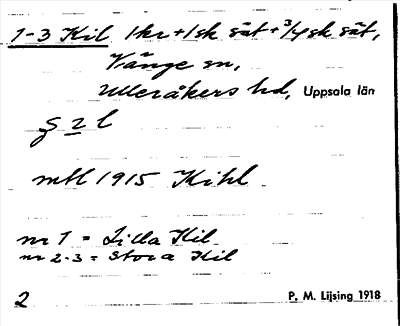 1-3 Kil 1kr+1sk sät+3/4sk sät,
Vänge sn,
Ulleråkers hd, Uppsala län
g 2 l
mtl 1915 Kihl
nr 1 = Lilla Kil
nr 2-3 = Stora Kil
2 P. M. Lijsing 1918